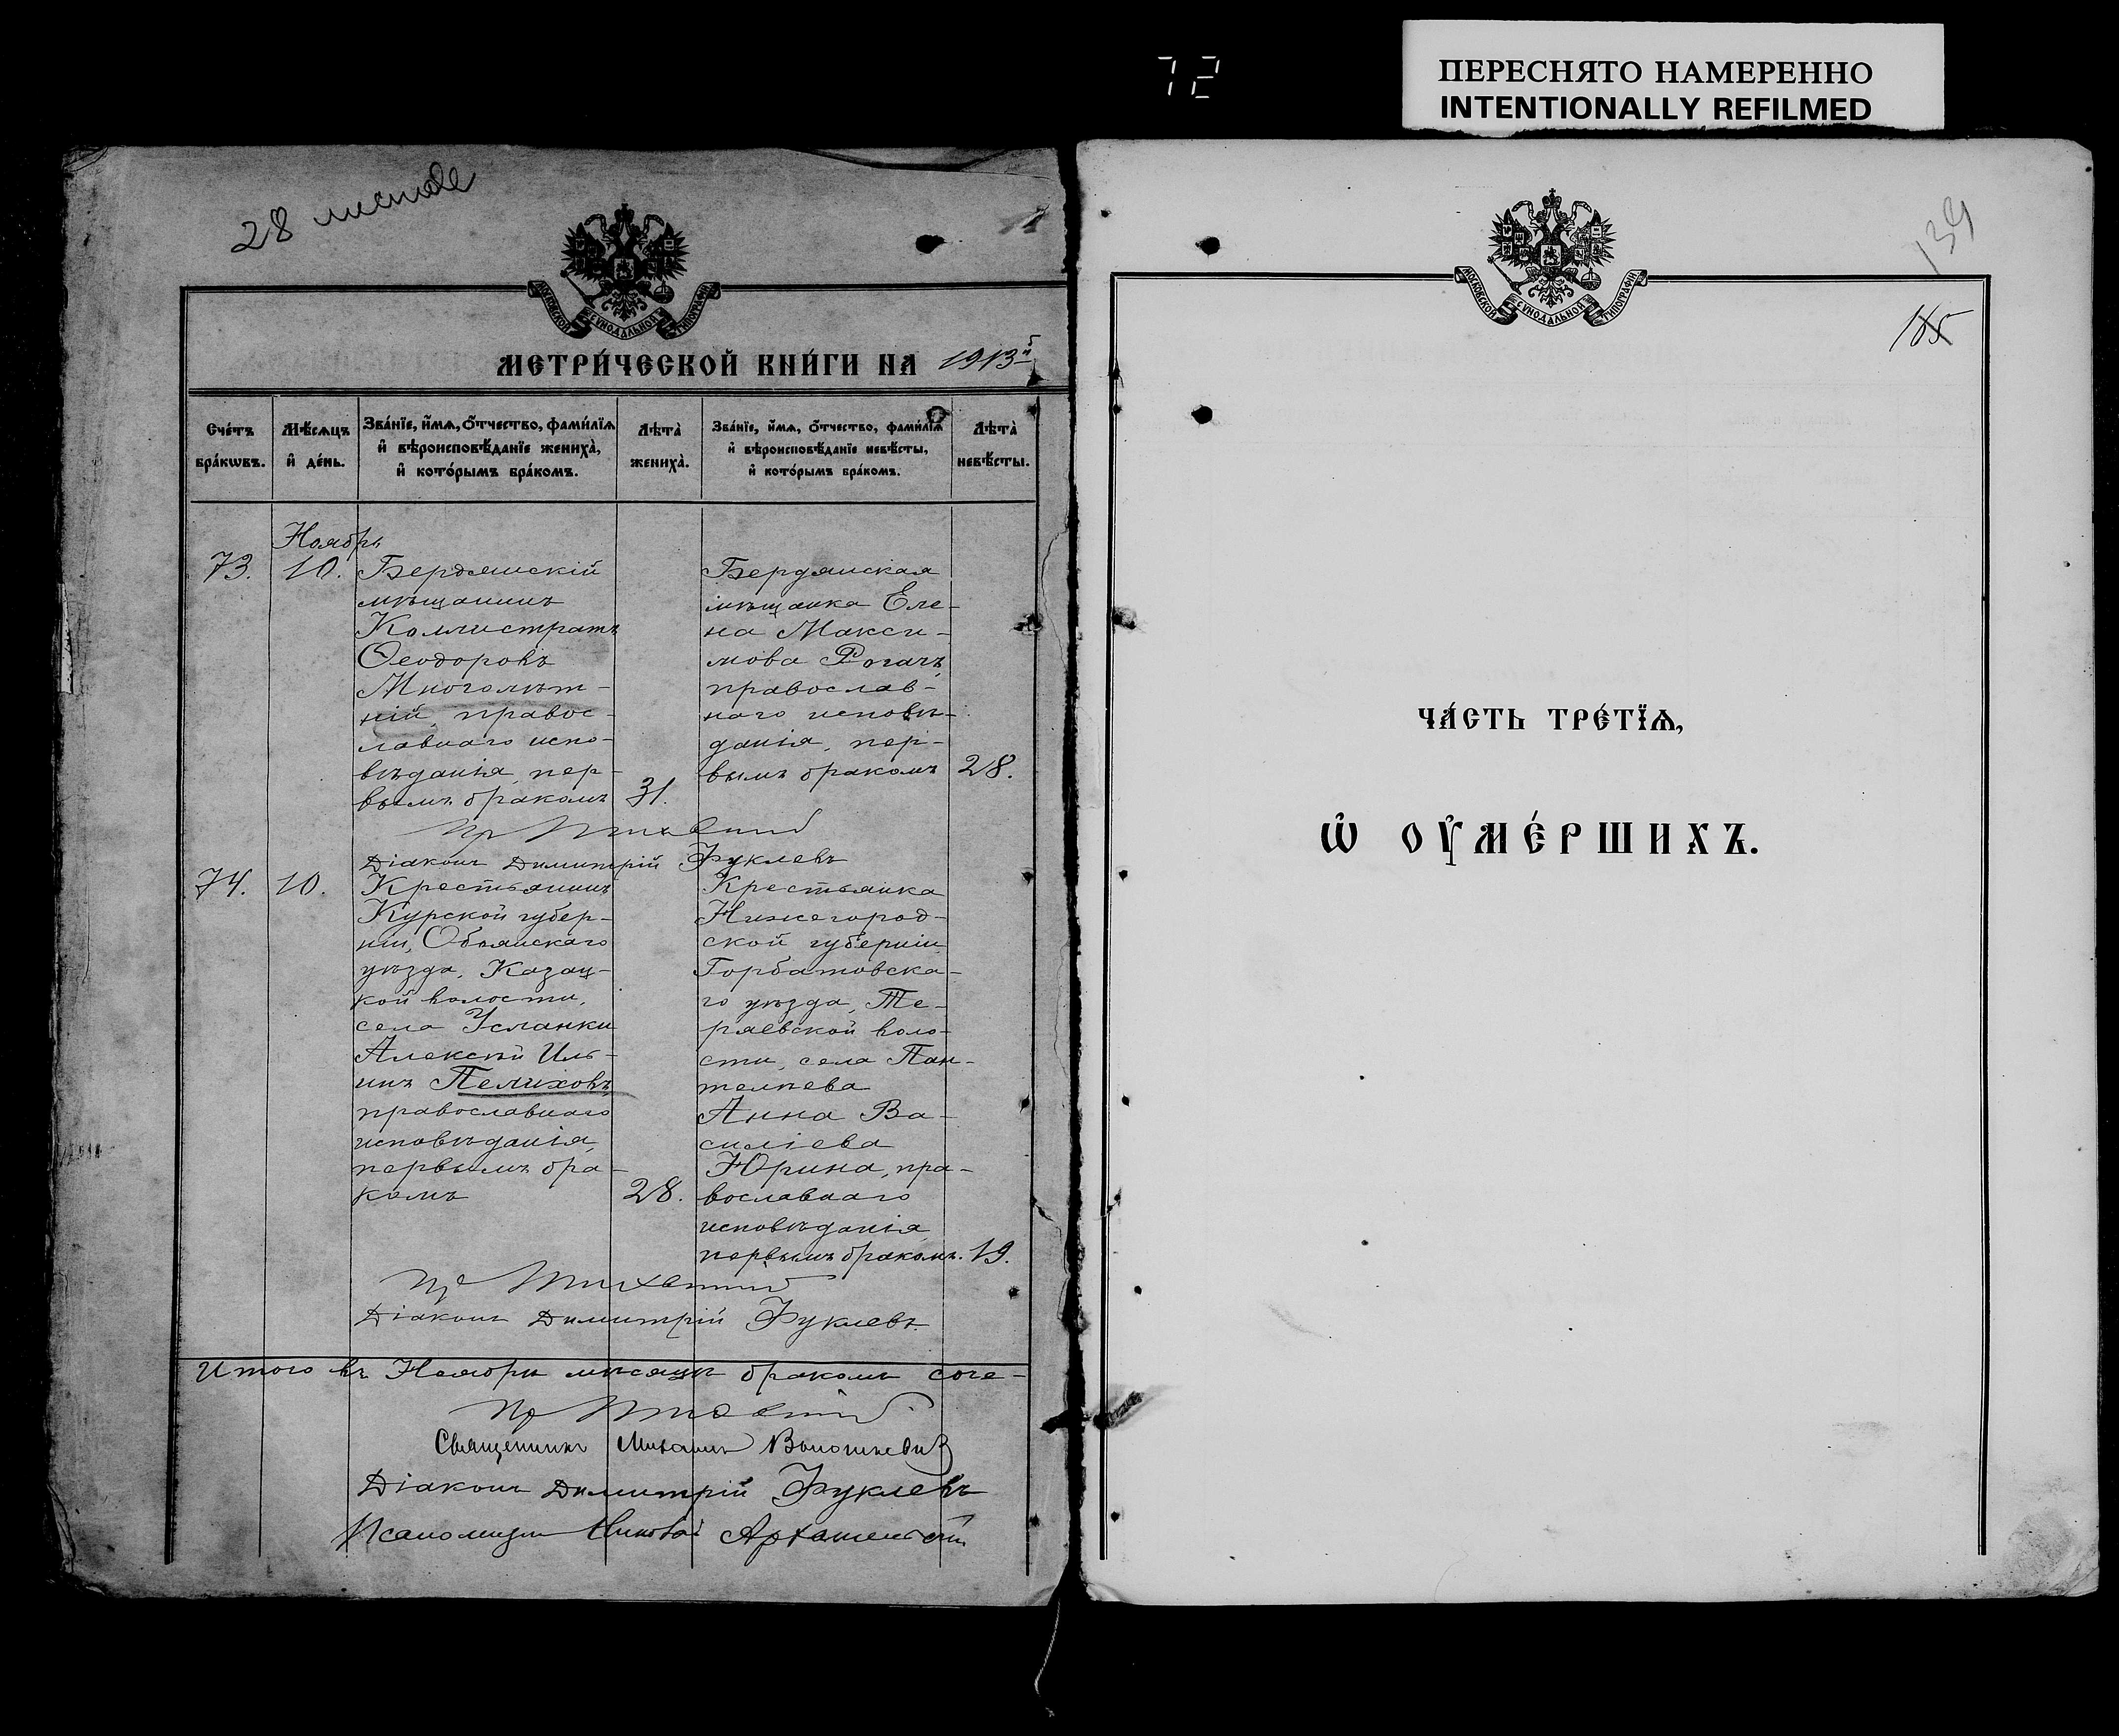 72
ПЕРЕСНЯТО НАМЕРЕННО
INTENTIONALLY REFILMED
28
МОСКОВСКОЙ СѴНОДАЛЬНОЙ ТИПОГРАФІИ
МЕТРИ́ЧЕСКОЙ КНИ́ГИ НА 1913й
Сче́тъ бра́кѡвъ.
Мѣ́сѧцъ и҆ де́нь.
Зва́нїе, и҆́мѧ, ѻ҆́тчество, фами́лїѧ и҆ вѣроисповѣ́данїе жениха̀, и҆ кото́рымъ бра́комъ.
Лѣта̀ жениха̀.
Зва́нїе, и҆́мѧ, ѻ҆́тчество, фами́лїѧ и҆ вѣроисповѣ́данїе невѣ́сты, и҆ кото́рымъ бра́комъ.
Лѣта̀ невѣ́сты.
Ноябрь
73.
10.
Бердянскій
мѣщанинъ
Каллистратъ
Ѳеодоровъ
Многолѣт-
ній, правос-
лавнаго испо-
вѣданія, пер-
вымъ бракомъ
31.
Бердянская
мѣщанка Еле-
на Макси-
мова Рогачъ,
православ-
наго исповѣ-
данія, пер-
вымъ бракомъ
28.
Діаконъ Димитрій Фуклевъ
74.
10.
Крестьянинъ
Курской губер-
ніи, Обоянскаго
уѣзда, Казац-
кой волости,
села Усланки
Алексѣй Иль-
инъ Пелиховъ,
православнаго
исповѣданія,
первымъ бра-
комъ
28.
Крестьянка
Нижегород-
ской губерніи,
Горбатовска-
го уѣзда, Те-
ряевской воло-
сти, села Пан-
телѣева
Анна Ва-
силіева
Юрина, пра-
вославнаго
исповѣданія,
первымъ бракомъ.
19.
Діаконъ Димитрій Фуклевъ
Итого въ Ноябрѣ мѣсяцѣ бракомъ соче-
Священникъ Михаилъ
Діаконъ Димитрій Фуклевъ
Псаломщикъ Николай Архангельскій
139
105
МОСКОВСКОЙ СѴНОДАЛЬНОЙ ТИПОГРАФІИ
ЧА́СТЬ ТРЕ́ТЇѦ,
Ѡ҆ ОУ҆МЕ́РШИХЪ.